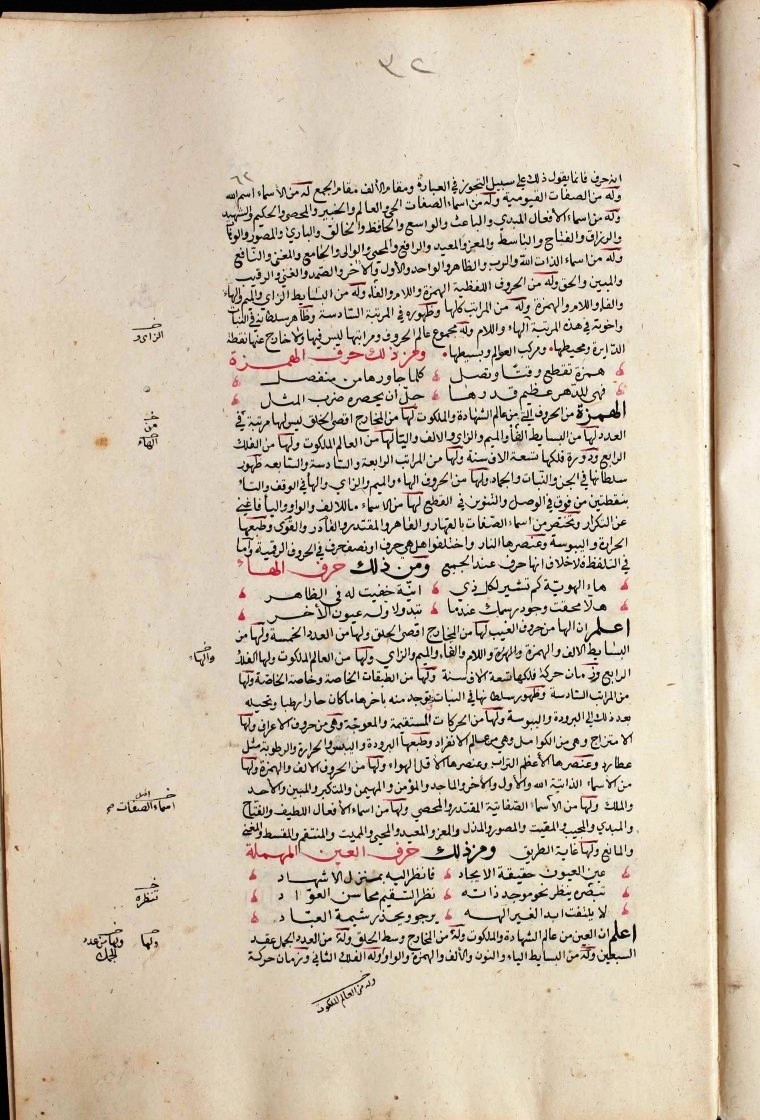 ٣٢
٦٢
انه حرف فانما يقول ذلك على سبيل التجوز في العبارة ومقام الألف مقام الجمع له من الأسماء اسم الله
وله من الصفات القيومية وله من اسماء الصفات الحي والعالم والخبير والمحصي والحكيم والشهيد
وله من اسماء الأفعال المبدي والباعث والواسع والحافظ والخالق والباري والمصور والوهاب
والرزاق والفتاح والباسط والمعز والمعيد والرافع والمحيي والوالي والجامع والمغني والنافع
وله من اسماء الذات الله والرب والظاهر والواحد والأول والآخر والصمد والغني والرقيب
والمبين والحق وله من الحروف اللفظية الهمزة واللام والفاء وله من البسايط الزاي والميم والهاء
والفاء واللام والهمزة وله من المراتب كلها وظهوره في المرتبة السادسة وظاهر سلطانه في النبات
واخوته في هذه المرتبة الهاء واللام وله مجموع عالم الحروف ومراتبها ليس فيها ولا خارج عنها نقطة
الدايرة ومحيطها ومركب العوالم وبسيطها ومن ذلك حرف الهمزة
همزة تقطع وقتا وتصل كلما جاورها من منفصل
فهي للدهر عظيم قدرها جل ان يحصره ضرب المثل
الهمزة من الحروف التي من عالم الشهادة والملكوت لها من المخارج اقصى الحلق ليس لها مرتبة في
العدد لها من البسايط الفاء والميم والزاي والألف واليا لها من العالم الملكوت ولها من الفلك
الرابع ودورة فلكها تسعة الاف سنة ولها من المراتب الرابعة والسادسة والسابعة ظهور
سلطانها في الجن والنبات والجماد ولها من الحروف الهاء والميم والزاي والها في الوقف والتاء
بنقطتين من فوق في الوصل والتنوين في القطع لها من الاسماء ما للالف والواو والياء فاغني
عن التكرار وتختص من اسماء الصفات بالقهار والقاهر والمقتدر والقادر والقوي وطبعها
الحرارة واليبوسة وعنصرها النار واختلفوا هل هي حرف او نصف حرف في الحروف الرقمية واما
في التلفظ فلا خلاف انها حرف عند الجميع ومن ذلك حرف الهاء
هاء الهوية كم تشير لكل ذي انية خفيت له في الظاهر
هلا محقت وجود رسمك عندما تبدو لأوله عيون الأخر
اعلم ان الها من حروف الغيب لها من المخارج اقصى الحلق ولها من العدد الخمسة ولها من
البسايط الالف والهمزة واللام والفاء والميم والزاي ولها من العالم الملكوت ولها الفلك
الرابع وزمان حركة فلكها تسعة الاف سنة ولها من الطبقات الخاصة وخاصة الخاصة ولها
من المراتب السادسة وظهور سلطانها في النبات يوجد منه باخرها ما كان حارا رطبا وتحيله
بعد ذلك الى البرودة واليبوسة ولها من الحركات المستقيمة والمعوجة وهي من حروف الاعراف ولها
الامتزاج وهي من الكوامل وهي من عالم الانفراد وطبعها البرودة واليبس والحرارة والرطوبة مثل
عطارد وعنصرها الأعظم التراب وعنصرها الاقل الهواء ولها من الحروف الالف والهمزة ولها
من الاسماء الذاتية الله والأول والآخر والماجد والمؤمن والمهيمن والمتكبر والمبين والأحد
والملك ولها من الأسماء الصفاتية المقتدر والمحصي ولها من اسماء الأفعال اللطيف والفتاح
والمبدي والمجيب والمقيت والمصور والمذل والمعز والمعيد والمحيي والمميت والمنتقم والمقسط والمغني
والمانع ولها غاية الطريق ومن ذلك حرف العين المهملة
عين العيون حقيقة الايجاد فانظر اليه بمنزل الاشهاد
تبصره ينظر نحو موجد ذاته نظر السقيم محاسن العواد
لا يلتفت ابدا لغير الهه يرجو ويحذر شيمة العباد
اعلم ان العين من عالم الشهادة والملكوت وله من المخارج وسط الحلق وله من العدد الجمل عقد
السبعين وله من البسايط الياء والنون والألف والهمزة والواو وله الفلك الثاني وزمان حركة
وله من العالم الملكوت
الزاي و
من
الهاء
والهاء
اسماء الصفات
تنظره
ولها
ولها من عدد
الجمل